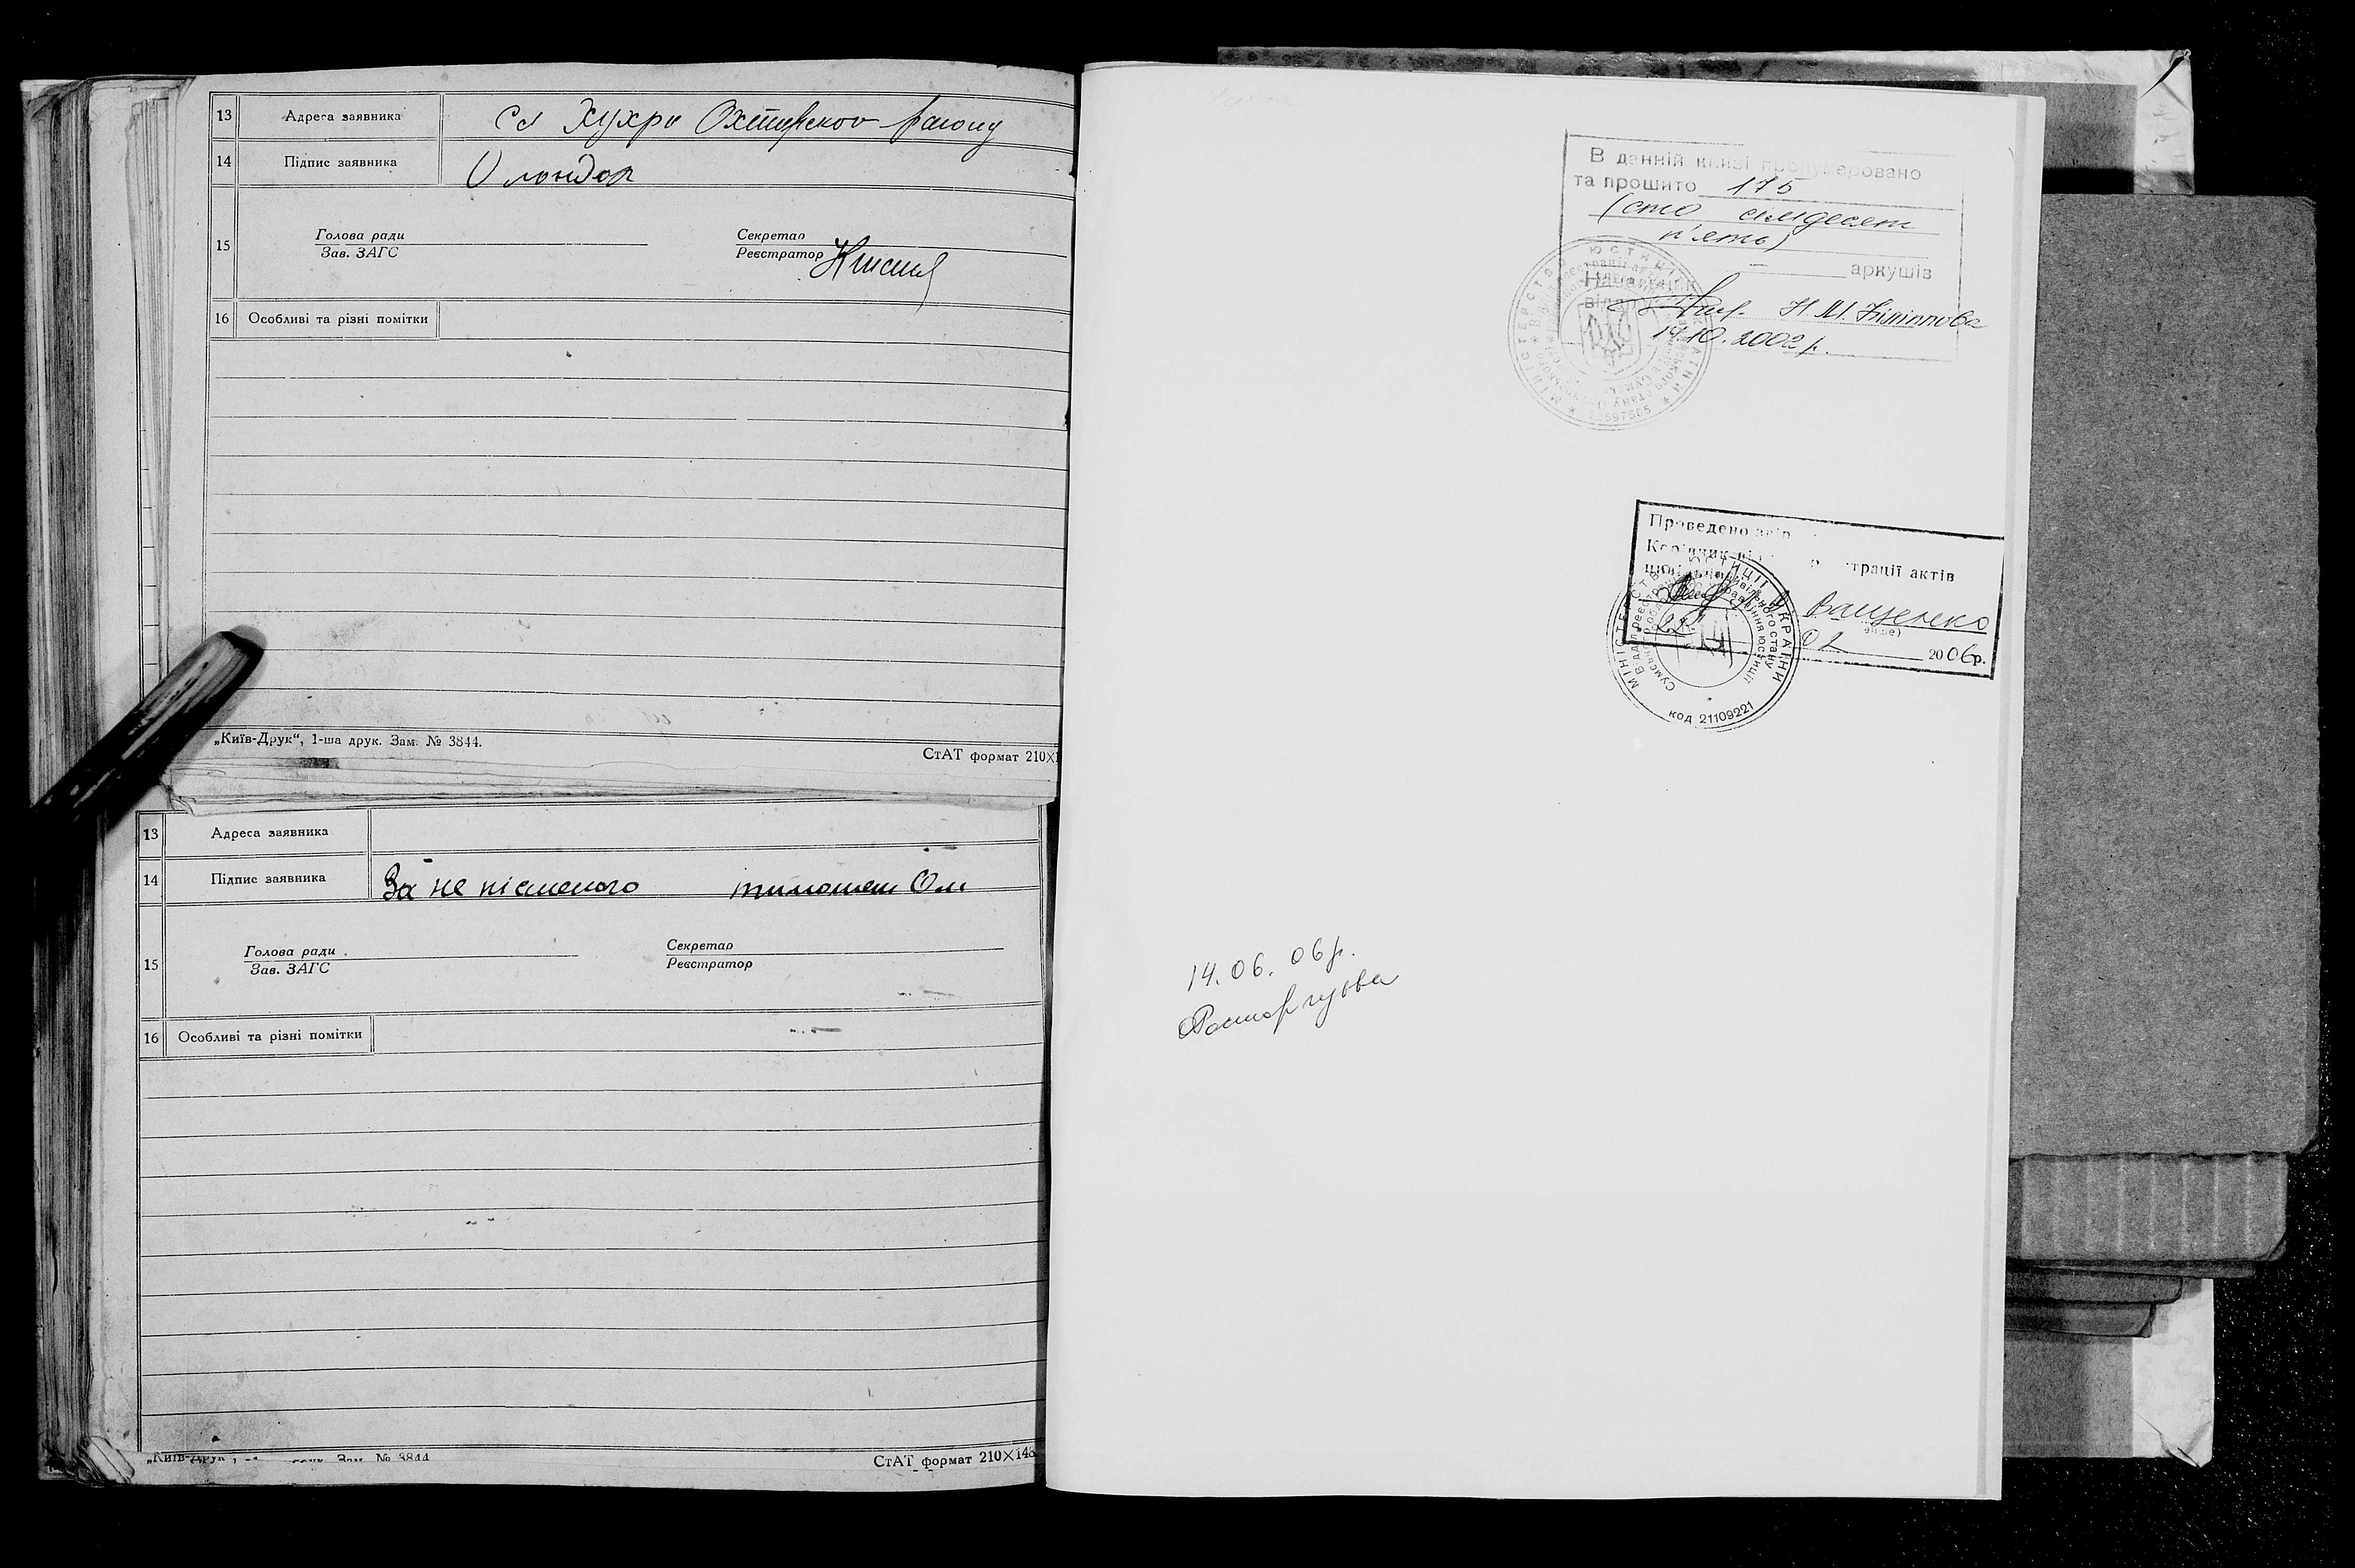 13 Адреса заявника Сл Хухра Охтирского району
14 Підпис заявника
15 Голова ради Секретар
Зав. ЗАГС Реєстратор
16 Особливі та різні помітки
„Київ-Друк“, 1-ша друк. Зам. № 3844.
СтАТ формат 210×1
13 Адреса заявника
14 Підпис заявника За не písменого
15 Голова ради Секретар
Зав. ЗАГС Реєстратор
16 Особливі та різні помітки
„Київ-Друк Зам. № 3844
СтАТ формат 210×148
В данній книзі пронумеровано
та прошито 175
(сто сімдесят
п'ять)
аркушів
Начальник
відділу Н. М. Філіппова
14.10.2002 р.
МІНІСТЕРСТВО ЮСТИЦІЇ
Проведено
Керівник страції актів
Ващенко
22 02 2006р.
МІНІСТЕРСТВО ЮСТИЦІЇ УКРАЇНИ
код 21109221
14.06.06р.
Расторгуева